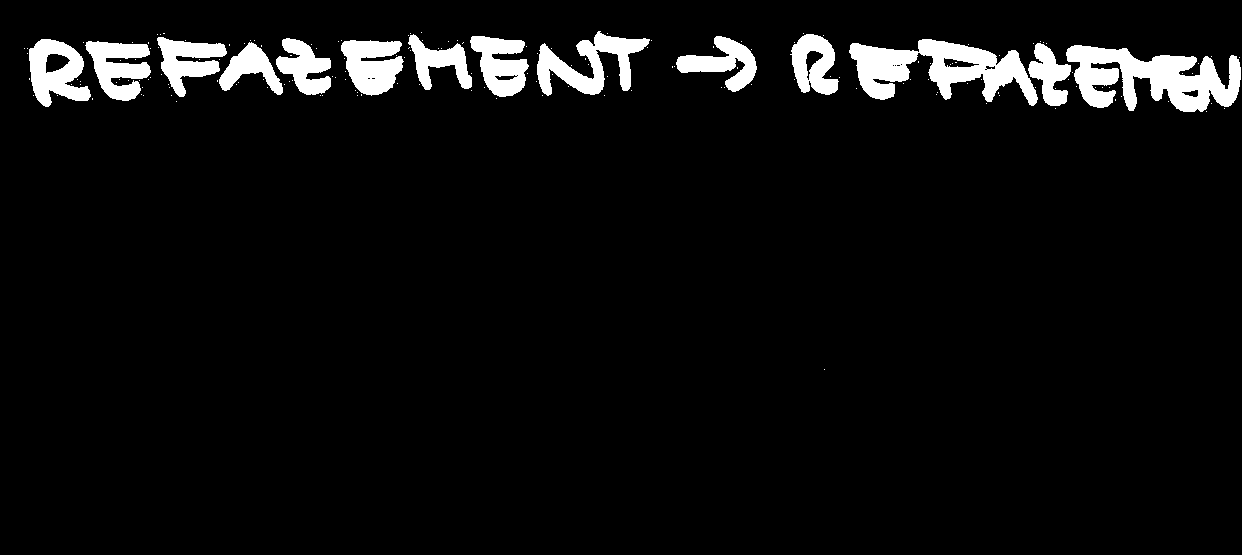 REFAZEMENT → REFAZEMEN